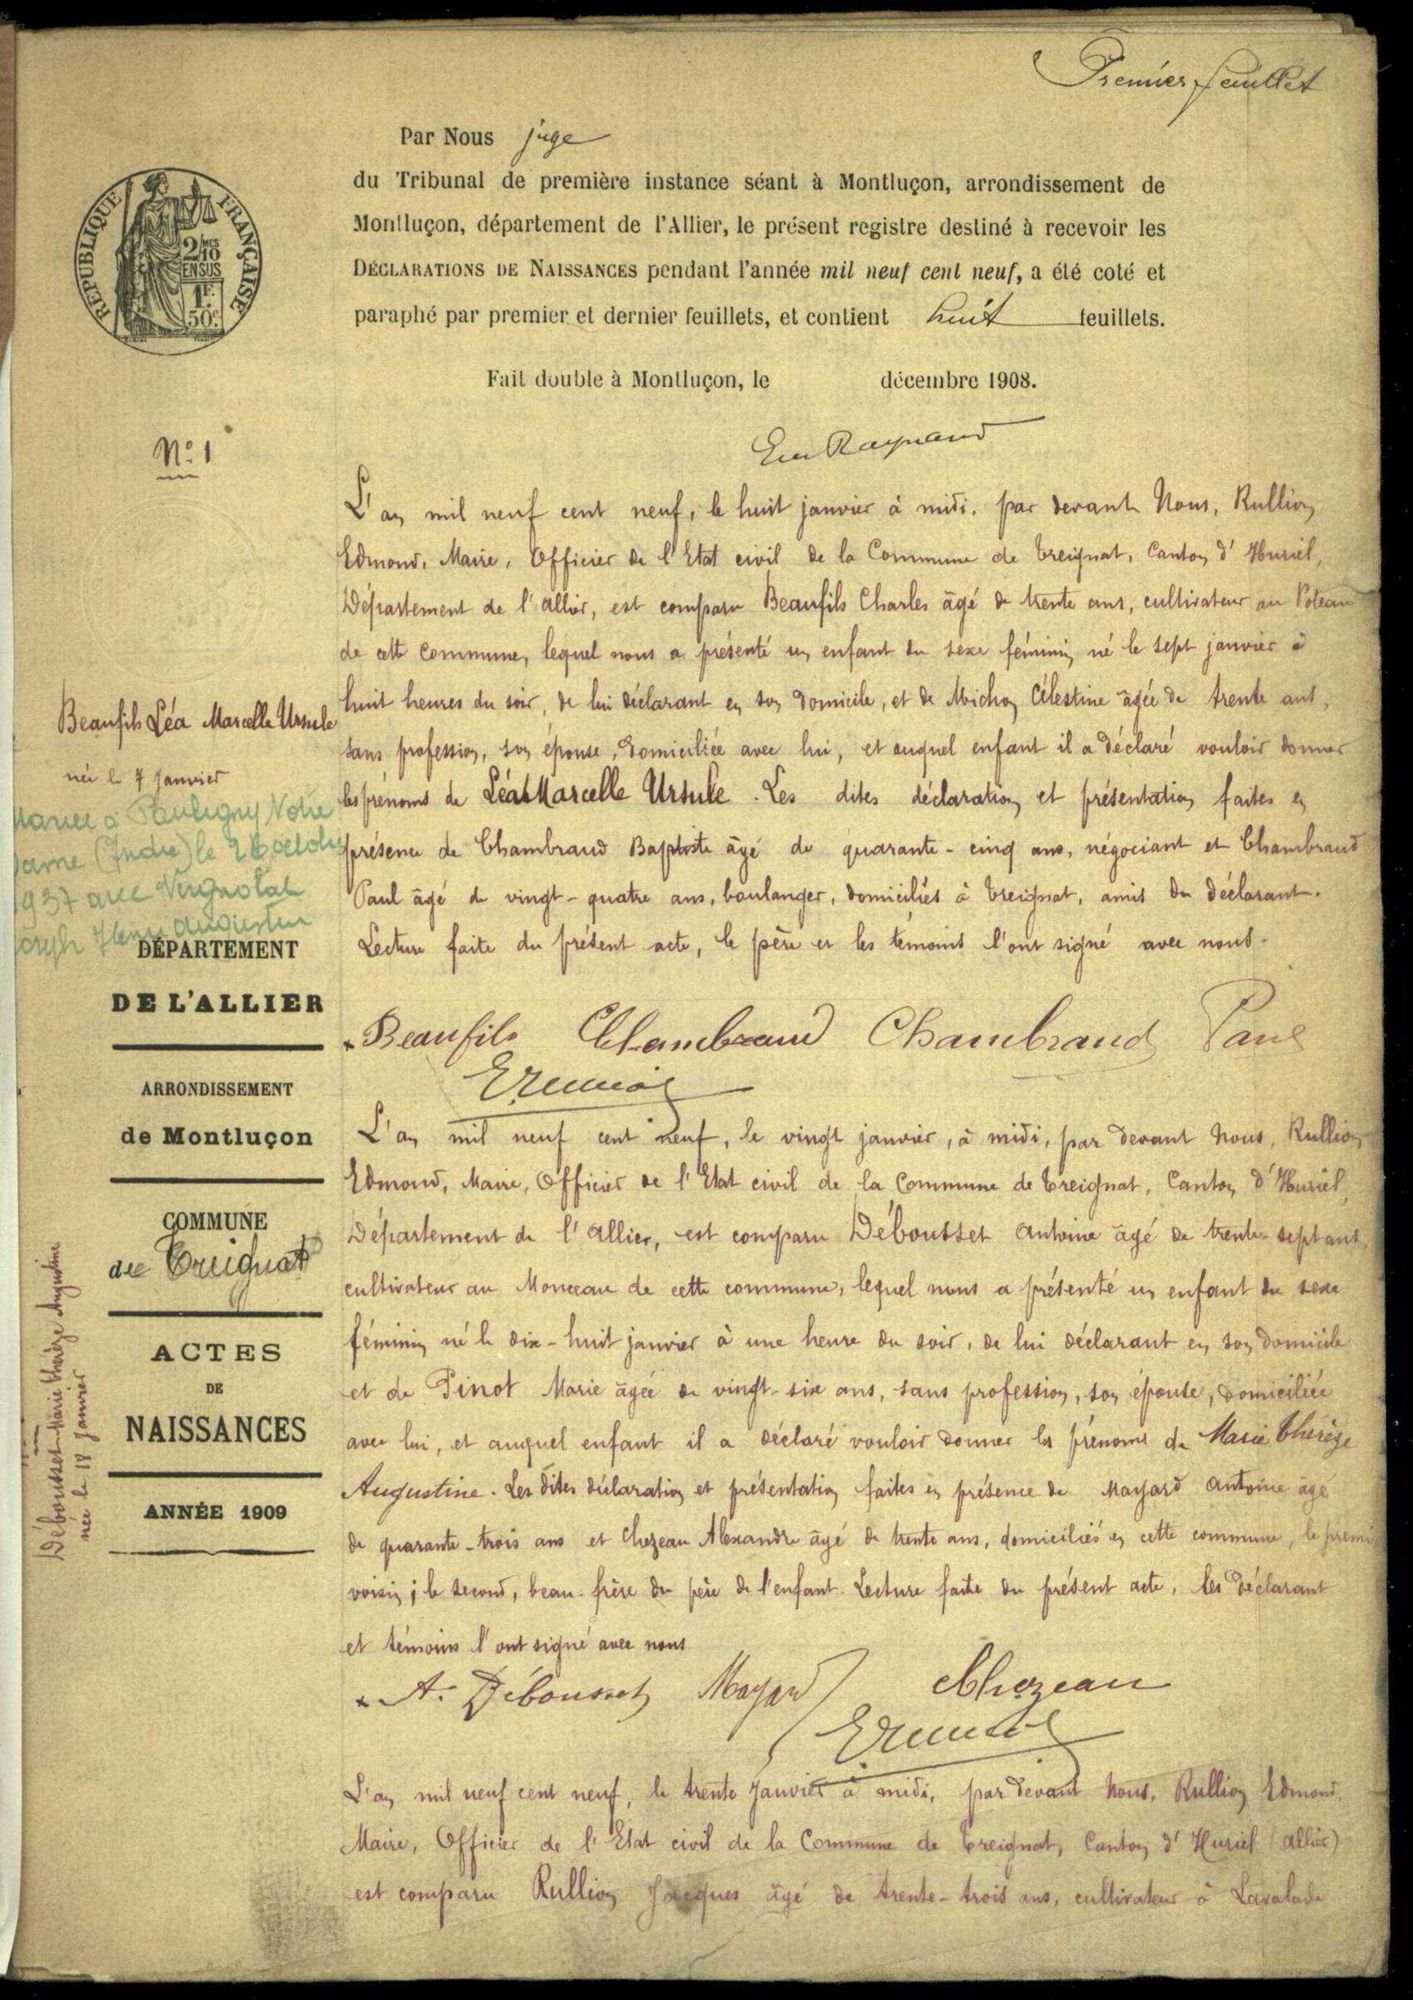 Premier feuillet
Par Nous juge
du Tribunal de première instance séant à Montluçon, arrondissement de
Montluçon, département de l'Allier, le présent registre destiné à recevoir les
DÉCLARATIONS DE NAISSANCES pendant l'année mil neuf cent neuf, a été coté et
paraphé par premier et dernier feuillets, et contient huit feuillets.
Fait double à Montluçon, le décembre 1908.
RÉPUBLIQUE FRANÇAISE
2/10
EN SUS
1F
50c
Raynaud
Nº 1
L'an mil neuf cent neuf, le huit janvier à midi, par devant Nous, Rullion
Edmond, Maire, Officier de l'Etat civil de la Commune de Treignat, Canton d'Huriel,
Département de l'Allier, est comparu Beaufils Charles âgé de trente ans, cultivateur au Poteau
de cette commune, lequel nous a présenté un enfant du sexe féminin né le sept janvier à
huit heures du soir, de lui déclarant en son domicile, et de Michon Célestine âgée de trente ans,
sans profession, son épouse, domiciliée avec lui, et auquel enfant il a déclaré vouloir donner
les prénoms de Léa Marcelle Ursule. Les dites déclaration et présentation faites en
présence de Chambraud Baptiste âgé de quarante-cinq ans, négociant et Chambraud
Paul âgé de vingt-quatre ans, boulanger, domiciliés à Treignat, amis du déclarant.
Lecture faite du présent acte, le père et les témoins l'ont signé avec nous.
Beaufils Chambraud Chambraud Paul
Beaufils Léa Marcelle Ursule
née le 7 Janvier
Mariée à Notre
Dame (Indre) le 26 octobre
1937 avec Vergnolat
Joseph Henri Augustin
DÉPARTEMENT
DE L'ALLIER
ARRONDISSEMENT
de Montluçon
COMMUNE
de Treignat
ACTES
DE
NAISSANCES
ANNÉE 1909
Débousset Marie Thérèze Augustine
née le 18 janvier
L'an mil neuf cent neuf, le vingt janvier, à midi, par devant Nous, Rullion
Edmond, Maire, Officier de l'Etat civil de la Commune de Treignat, Canton d'Huriel,
Département de l'Allier, est comparu Débousset Antoine âgé de trente-sept ans,
cultivateur au Monceau de cette commune, lequel nous a présenté un enfant du sexe
féminin né le dix-huit janvier à une heure du soir, de lui déclarant en son domicile
et de Pinot Marie âgée de vingt-six ans, sans profession, son épouse, domiciliée
avec lui, et auquel enfant il a déclaré vouloir donner les prénoms de Marie Thérèze
Augustine. Les dites déclaration et présentation faites en présence de Mayard Antoine âgé
de quarante-trois ans et Chezeau Alexandre âgé de trente ans, domiciliés en cette commune, le premi
voisin; le second, beau-frère du père de l'enfant. Lecture faite du présent acte, les déclarant
et témoins l'ont signé avec nous
A. Débousset Mayard Chezeau
L'an mil neuf cent neuf, le trente Janvier à midi, par devant Nous, Rullion Edmond,
Maire, Officier de l'Etat civil de la Commune de Treignat, Canton d'Huriel (Allier)
est comparu Rullion Jacques âgé de trente-trois ans, cultivateur à Lavalade